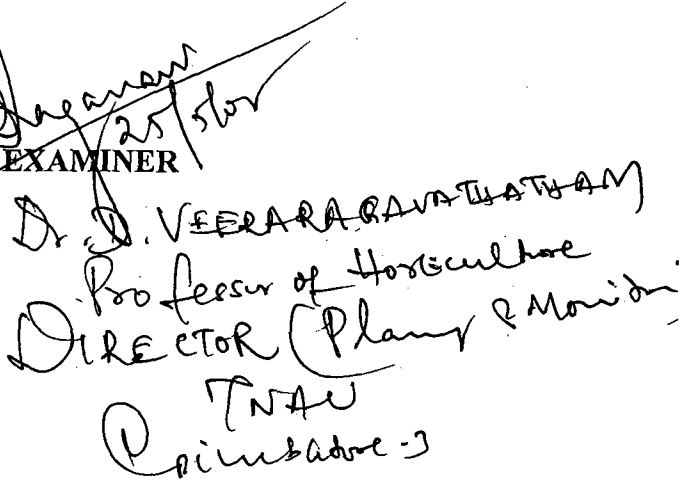 25/5/05
EXAMINER
Dr. D. VEERARAGAVATHATHAM
Professor of Horticulture
DIRECTOR (Planng & Monitn
TNAU
Coimbatore-3